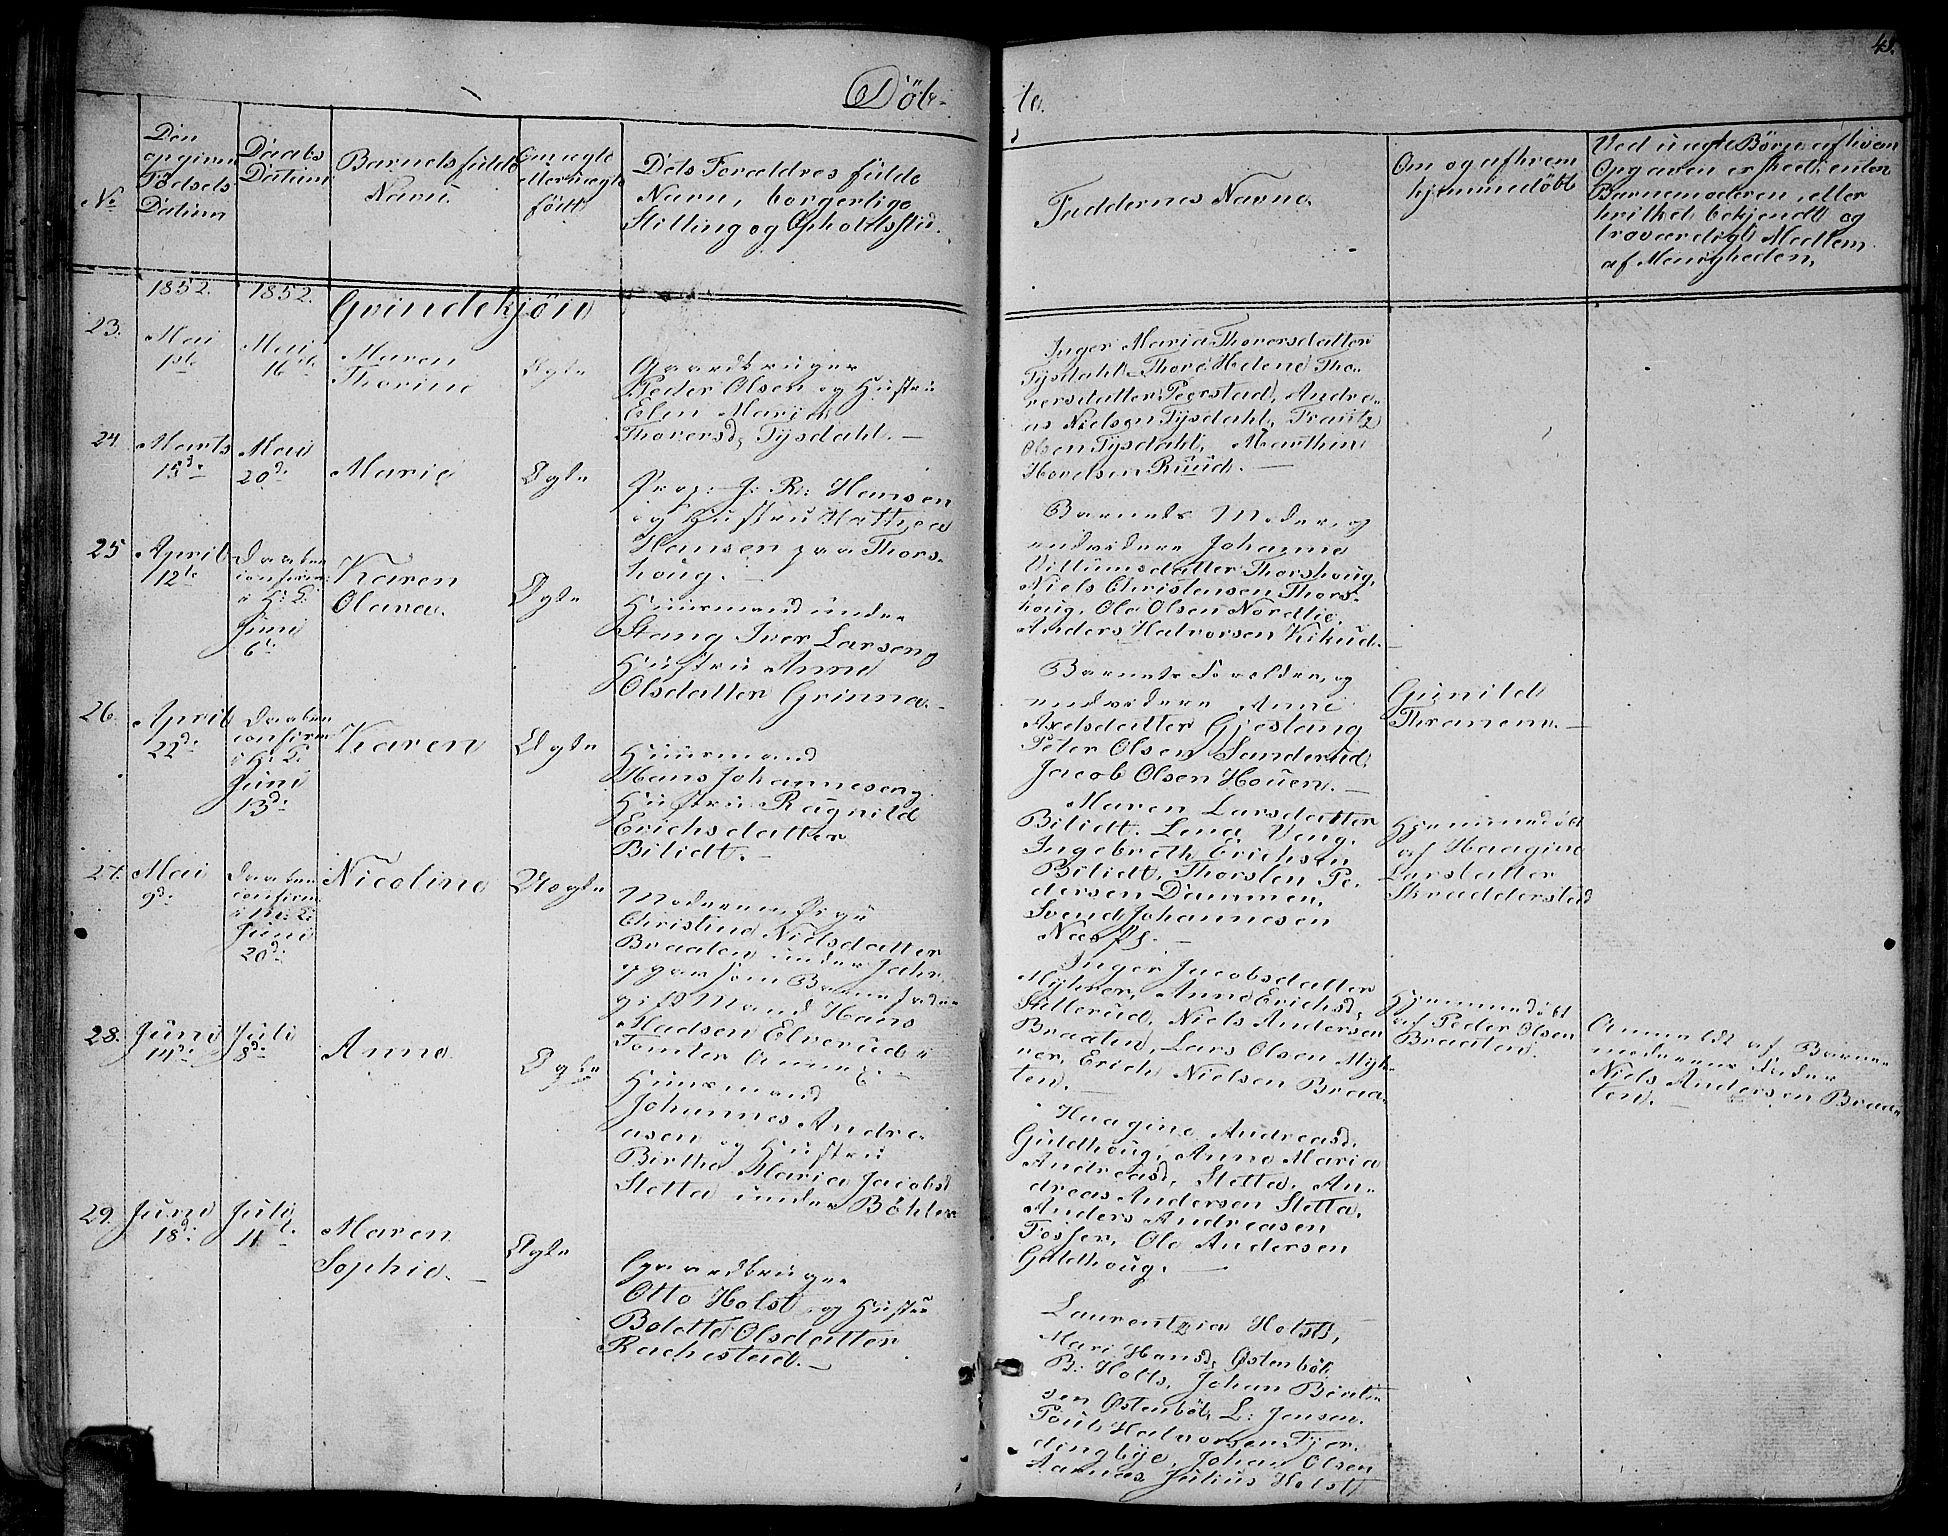 48.
Döb-
te.
No
Den
opgivne
Fødsels
Datum
Daabs
Datum
Barnets fulde
Navn.
Om ægte
eller uægte
født
Dets Forældres fulde
Navn, borgerlige
Stilling og Opholdssted.
Faddernes Navne.
Om og af hvem
hjemmedöbt
Ved uægte Børn af hvem
Opgaven er skeet, enten
Barnemoderen, eller
hvilket bekjendt og
troværdigt Medlem
af Menigheden.
1852.
1852.
Qvindekjön
23.
Mai
1ste
Mai
16de
Maren
Thorine
Ægte
Gaardbruger
Peder Olsen og Hustru
Elen Maria
Thoversd: Tysdahl. —
Inger Maria Thoversdatter
Tysdahl, Thore Helene Tho-
versdatter Peerstad, Andre-
as Nielsen Tysdahl, Frantz
Olsen Tysdahl, Marthin
Hovelsen Ruud. —
24.
Marts
15de
Mai
20d:
Marie
Ægte
Prop: J: R: Hansen
og Hustru Mathea
Hansen paa Thors-
houg. —
Barnets Moder, og
endvidere Johanna
Villumsdatter Thorshoug,
Niels Christensen Thors-
houg, Ole Olsen Nordlie,
Anders Halvorsen Kikud. —
25
April
12te
Daaben
confirm:
i H: K:
Juni
6te
Karen
Olava.
Ægte
Huusmand under
Stang Iver Larsen og
Hustru Anne
Olsdatter Grinna. —
Barnets Forældre, og
endvidere Anne
Axelsdatter Gjeslang
Peter Olsen Sanderud,
Jacob Olsen Houen. —
Gunild
Thranem. —
26.
April
22d:
Daaben
confirm
i H: K:
Juni
13d:
Karen
Ægte
Huusmand
Hans Johannesen og
Hustru Ragnild
Erichsdatter
Bilidt. —
Maren Larsdatter
Bilidt. Lena Veng.
Ingebreth Erichsen
Bilidt, Thorsten Pe-
dersen Dammen,
Svend Johannesen
Næss. —
Hjemmedöbt
af Haagine
Larsdatter
Skradderstad
27.
Mai
9d:
Daaben
confirm:
i H: K:
Juni
20d:
Nicoline
Uægte
Moderen Pige
Christine Nielsdatter
Braaten under
opgav som Barnefader
gift Mand Hans
Madsen Elverud i
Tomter Annex —
Inger Jacobsdatter
Myhrer, Anne Erichsd:
Stillerud, Niels Andersen
Braaten, Lars Olsen Myh-
rer, Erich Nielsen Braa-
ten. —
Hjemmedöbt
af Peder Olsen
Braaten.
Anmeldt af Barne-
moderens Fader
Niels Andersen Braa-
ten. —
28.
Juni
14d:
Juli
8d:
Anne
Ægte
Huusmand
Johannes Andre-
asen og Hustru
Birthe Maria Jacobsd
Stetta under Böhler
Haagine Andreasd:
Guldhoug, Anne Maria
Andreasd, Stetta, An-
dreas Andersen Stetta,
Anders Andreasen
Fosser, Ole Andersen
Guldhoug. —
29.
Juni
18d:
Juli
11t.
Maren
Sophie. —
Ægte
Gaardbruger
Otto Holst og Hustru
Bolette Olsdatter
Rachestad. —
Laurentzia Holst,
Mari Hansd: Østenböl,
B: Holts, Johan Bent-
sen Østenböl, L: Jensen.
Poul Halvorsen Fjer-
dingbye, Johan Olsen
Aarnes, Julius Holst